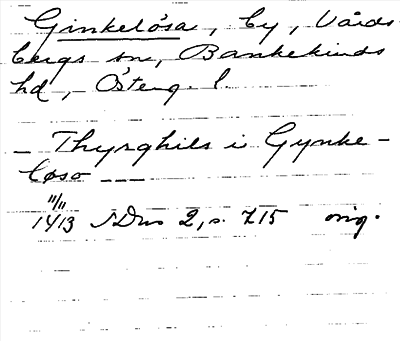 Ginkelösa, by, Vårds-
bergs sn, Bankekinds
hd, Österg. l.
- Thyrghils i Gynke-
løso ---
11/11
1413 SDns 2, s. 715 orig.